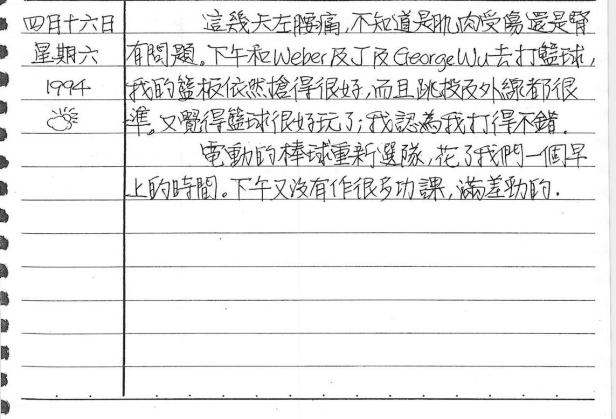 四月十六日
星期六
1994
這幾天左腰痛，不知道是肌肉受傷還是腎
有問題。下午和Weber及丁及George Wu去打籃球，
我的籃板依然搶得很好，而且跳投及外線都很
準。又覺得籃球很好玩了；我認為我打得不錯．
電動的棒球重新選隊，花了我們一個早
上的時間。下午又沒有作很多功課，滿差勁的．